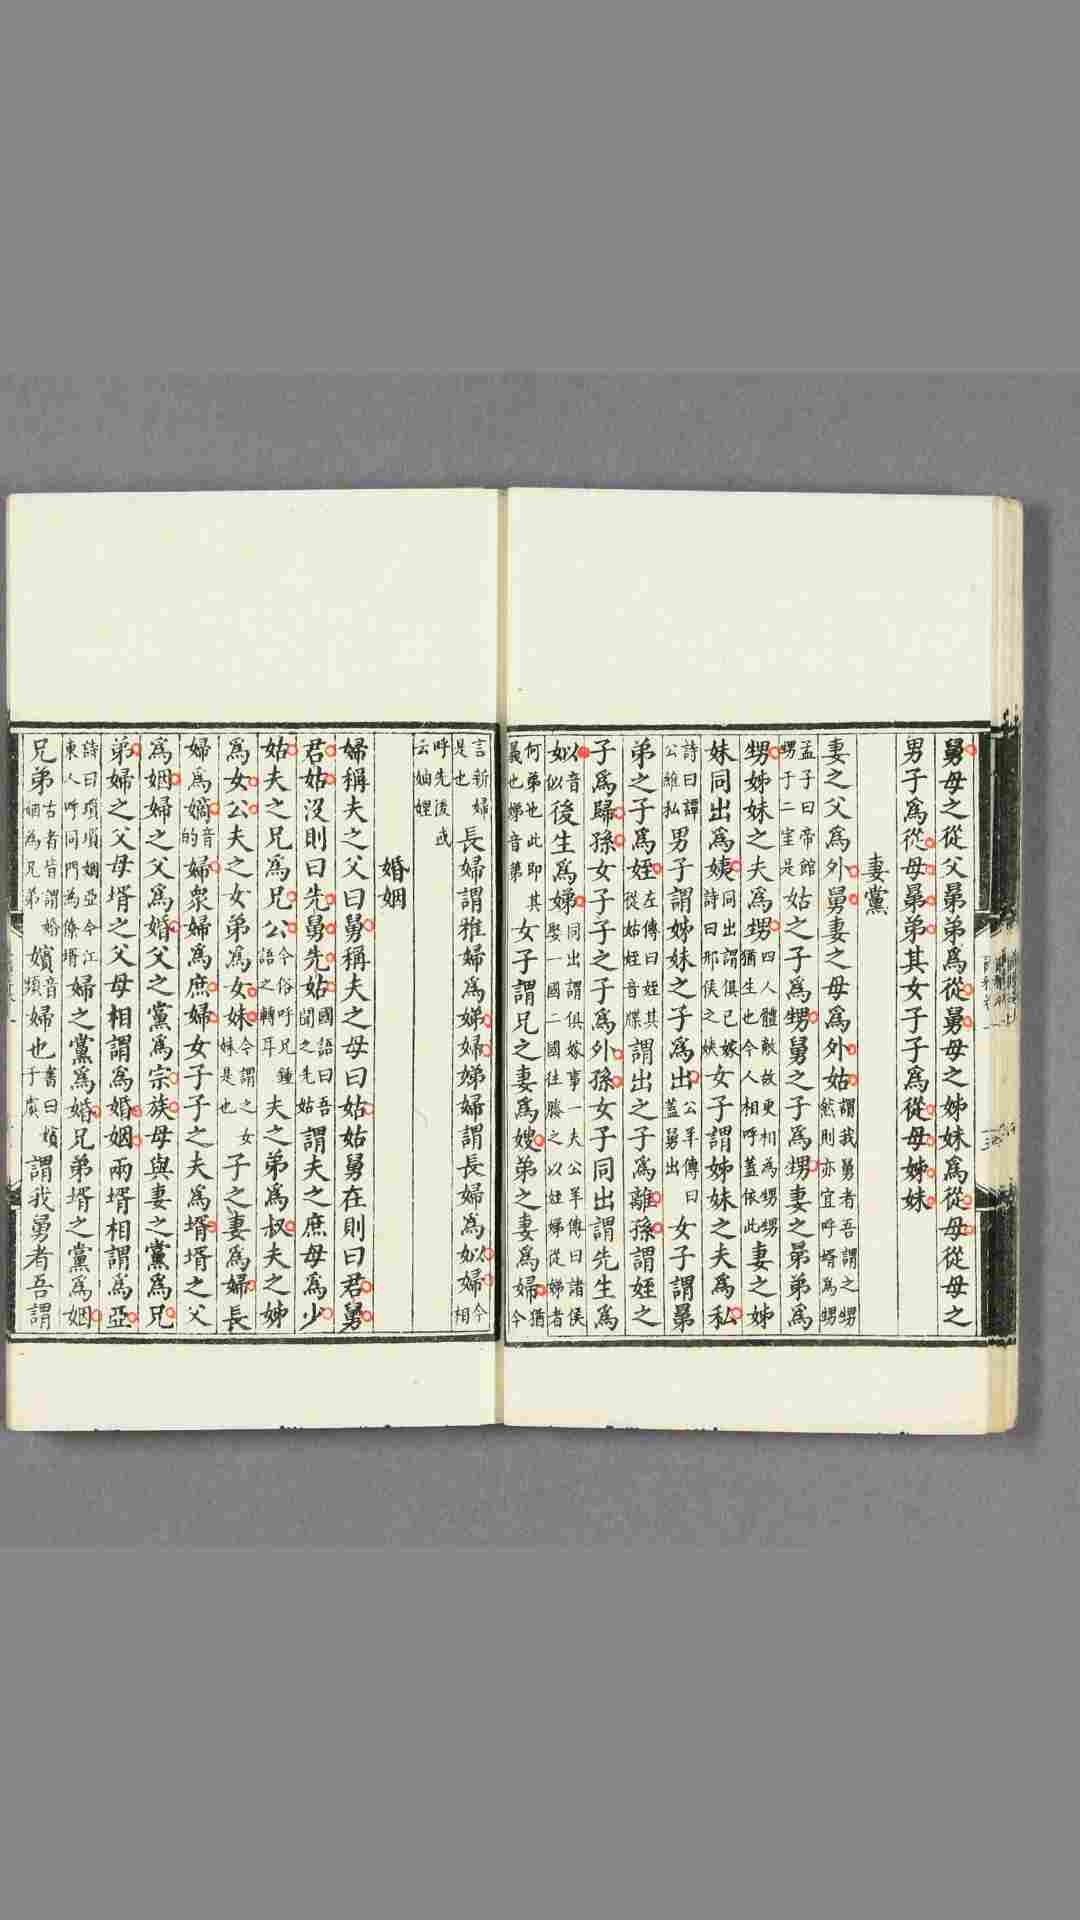 舅母之從父晜弟爲從舅母之姊妹爲從母從母之
男子爲從母晜弟其女子子爲從母姊妹
妻黨
妻之父爲外舅妻之母爲外姑謂我舅者吾謂之甥然則亦宜呼壻爲甥
孟子曰帝館甥于二室是姑之子爲甥舅之子爲甥妻之晜弟爲
甥姊妹之夫爲甥四人體敵故更相為甥甥猶生也今人相呼蓋依此妻之姊
妹同出爲姨同出謂俱已嫁詩曰邢侯之姨女子謂姊妹之夫爲私
詩曰譚公維私男子謂姊妹之子爲出公羊傳曰蓋舅出女子謂晜
弟之子爲姪左傳曰姪其從姑姪音牒謂出之子爲離孫謂姪之
子爲歸孫女子子之子爲外孫女子同出謂先生爲
姒音似後生爲娣同出謂俱嫁事一夫公羊傳曰諸侯娶一國二國往媵之以姪娣從娣者
何弟也此即其義也娣音弟女子謂兄之妻爲嫂弟之妻爲婦猶今
言新婦是也長婦謂稚婦爲娣婦娣婦謂長婦爲姒婦今相
呼先後或云妯娌
婚姻
婦稱夫之父曰舅稱夫之母曰姑姑舅在則曰君舅
君姑沒則曰先舅先姑國語曰吾聞之先姑謂夫之庶母爲少
姑夫之兄爲兄公今俗呼兄鍾語之轉耳夫之弟爲叔夫之姊
爲女公夫之女弟爲女妹今謂之女妹是也子之妻爲婦長
婦爲嫡音的婦衆婦爲庶婦女子子之夫爲壻壻之父
爲姻婦之父爲婚父之黨爲宗族母與妻之黨爲兄
弟婦之父母壻之父母相謂爲婚姻兩壻相謂爲亞
詩曰瑣瑣姻亞今江東人呼同門為僚壻婦之黨爲婚兄弟壻之黨爲姻
兄弟古者皆謂婚姻為兄弟嬪音頻婦也書曰嬪于虞謂我舅者吾謂